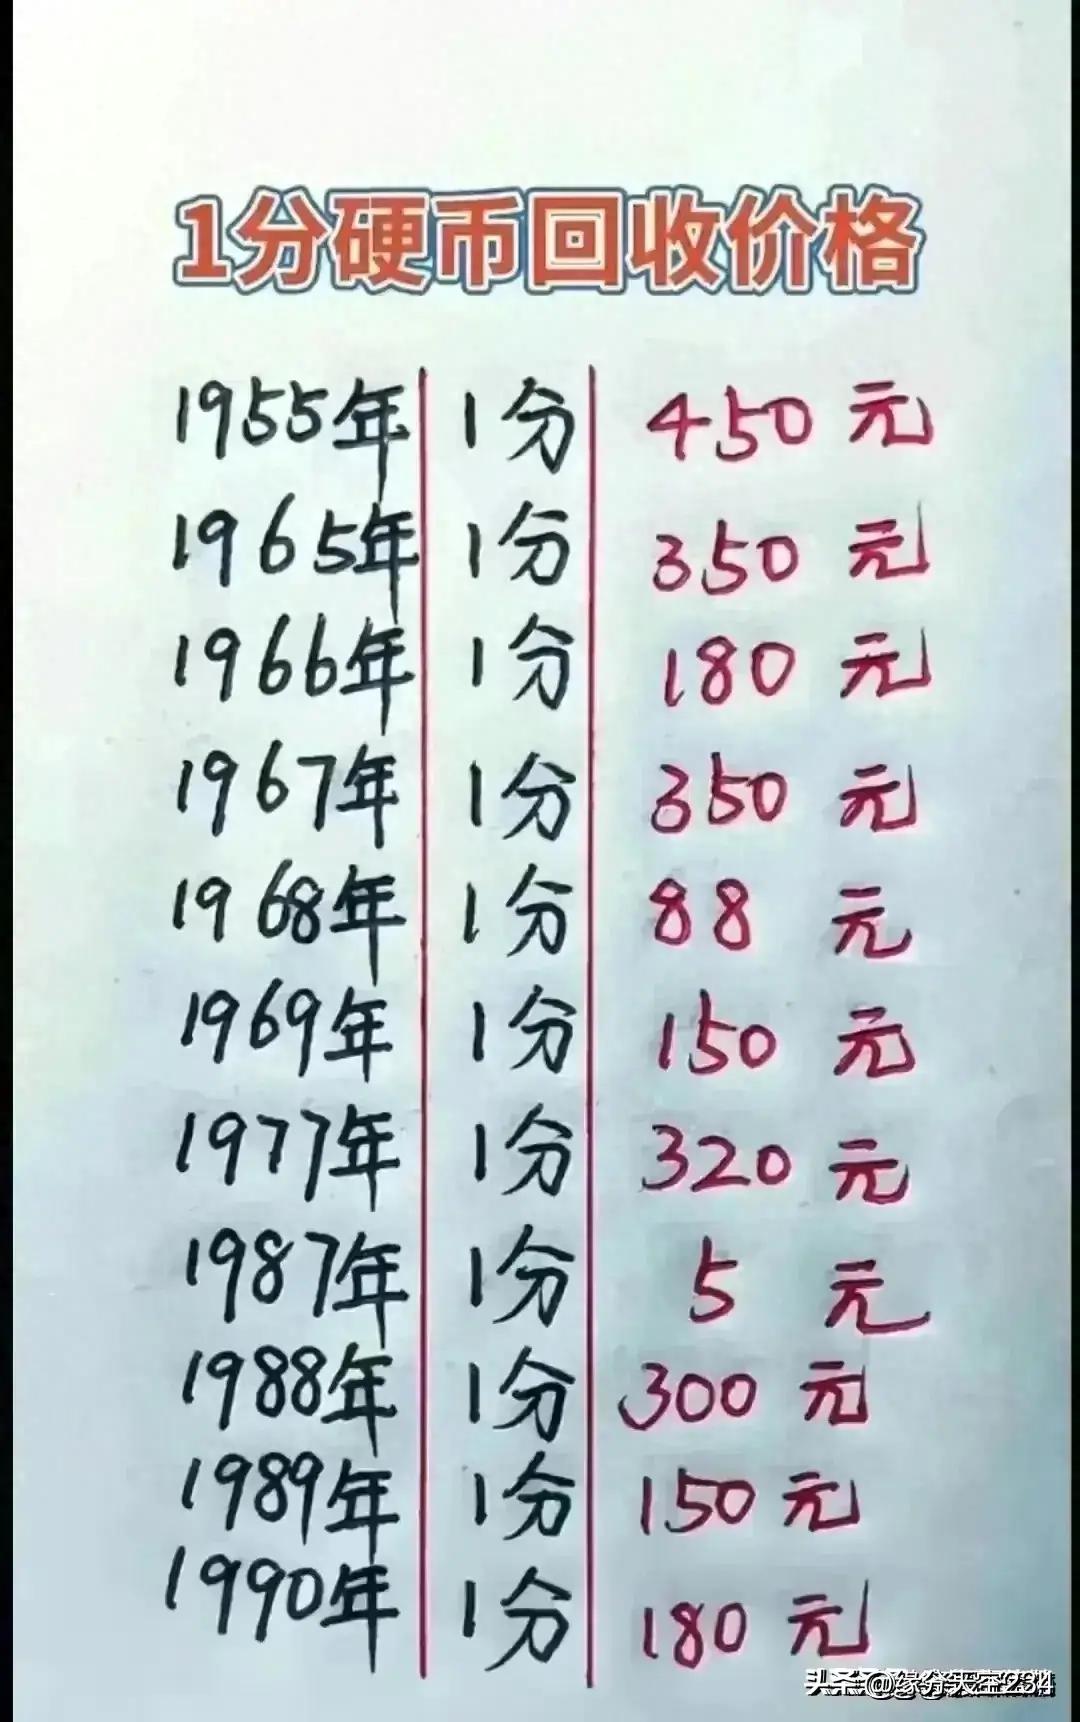 1分硬币回收价格
1955年 1分 450元
1965年 1分 350元
1966年 1分 180元
1967年 1分 350元
1968年 1分 88元
1969年 1分 150元
1977年 1分 320元
1987年 1分 5元
1988年 1分 300元
1989年 1分 150元
1990年 1分 180元
头条@缘分天空234